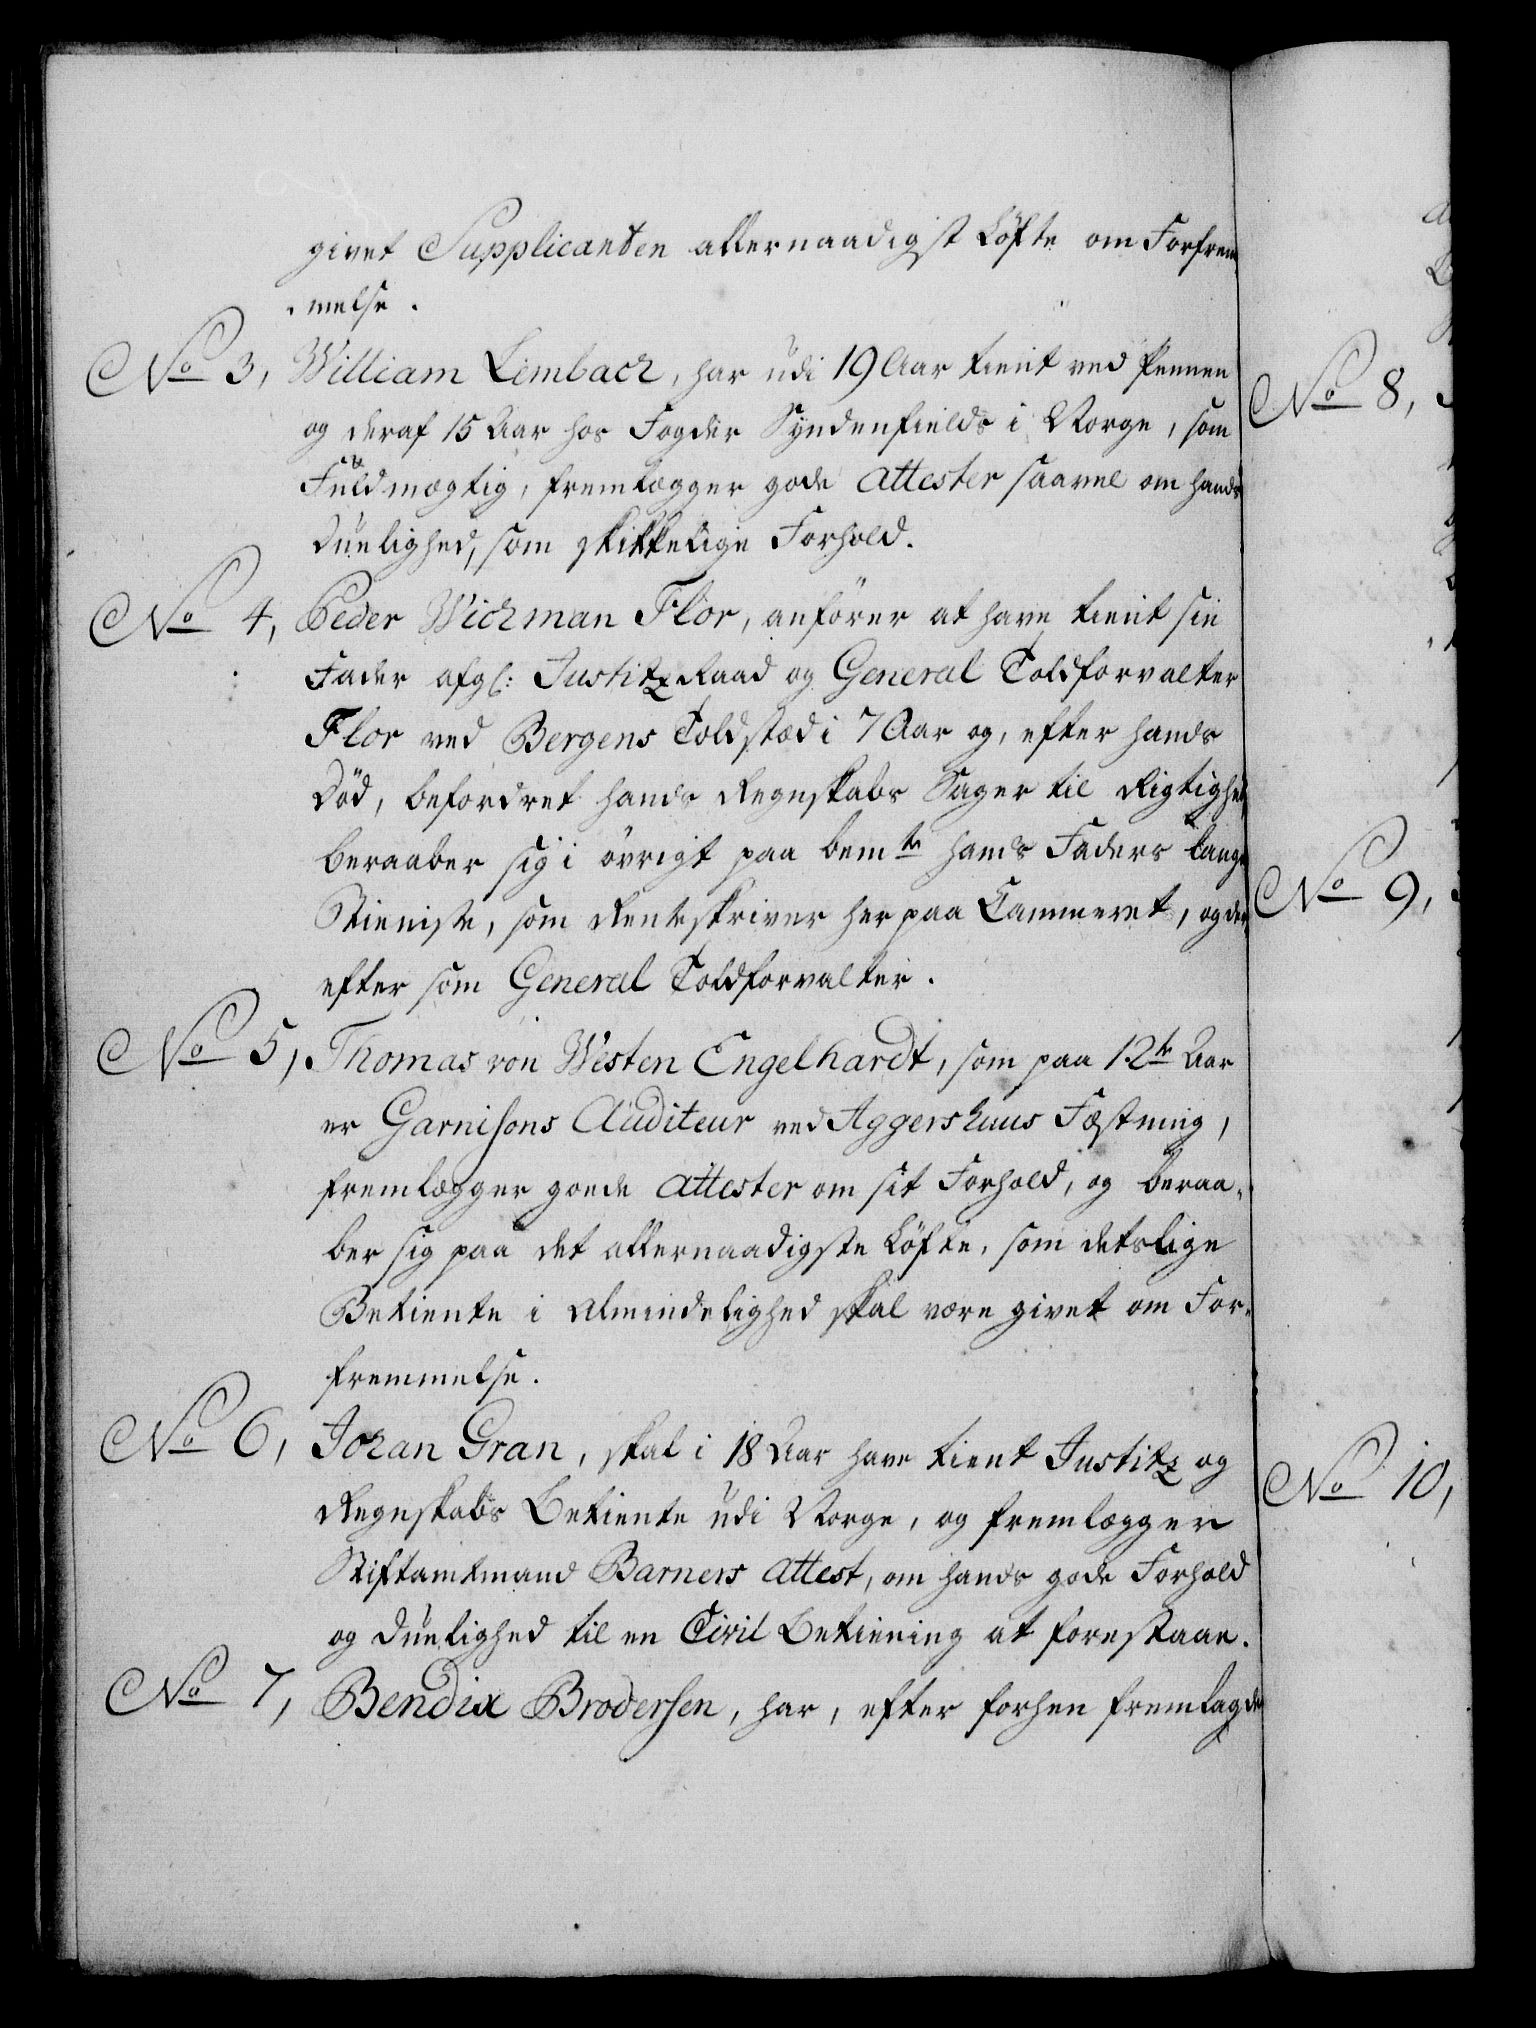 givet Supplicanten allernaadigst Löfte om Forfrem
melse.
No 3, William Limbach, har udi 19 Aar tient ved Pennen
og deraf 15 Aar hos Fogder Syndenfields i Norge, som
Fuldmægtig, fremlægger gode Attester saavel om hands
Duelighed, som skikkelige Forhold.
No 4, Peder Wichman Flor, anfører at have tient sin
Fader afgl: Justitz Raad og General Toldforvalter
Flor ved Bergens Toldsted i 7 Aar og, efter hands
Död, befordret hands Regnskabs Sager til Rigtighed,
beraaber sig i övrigt paa bemte hands Faders lange
Tieniste, som Renteskriver her paa Cammeret, og der
efter som General Toldforvalter.
No 5, Thomas von Westen Engelhardt, som paa 12te Aar
er Garnisons Auditeur ved Aggershuus Fæstning,
fremlægger goede Attester om sit Forhold, og beraa-
ber sig paa det allernaadigste Löfte, som deslige
Betiente i Almindelighed skal være givet om For-
fremmelse.
No 6, Johan Gran, skal i 18 Aar have tient Justitz og
Regnskabs Betiente udi Norge, og fremlægger
Stiftamtmand Barners Attest, om hands gode Forhold
og Duelighed til en Civil Betiening at forestaae.
No 7, Bendix Brodersen, har, efter forhen fremlagde
No 8,
No 9,
No 10,